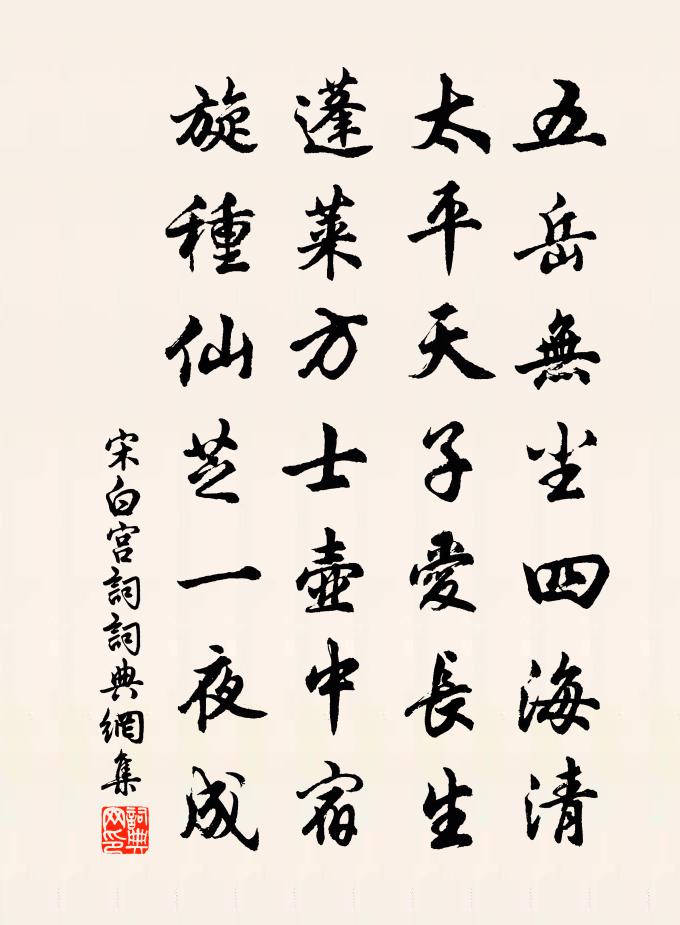 五岳無尘四海清
太平天子愛長生
蓬莱方士壺中宿
旋種仙芝一夜成
宋白宫詞詞典網集
詞典
网印